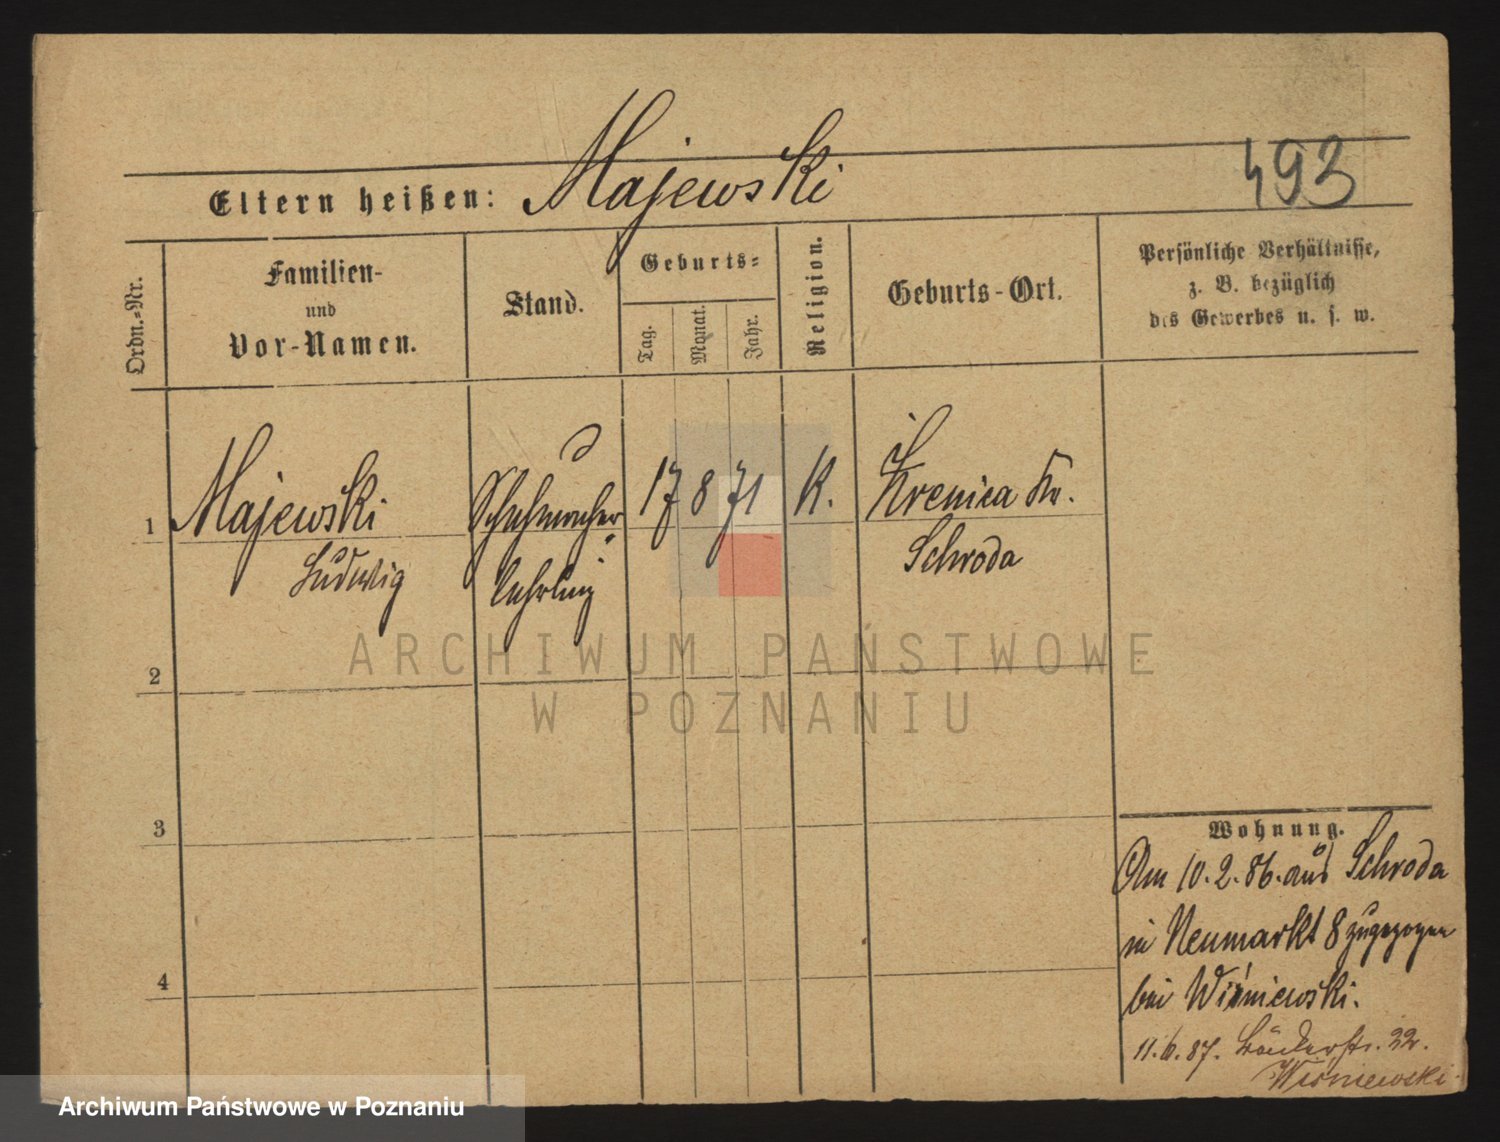 493
Eltern heißen: Majewski
Ordn.-Nr.
Familien-
und
Vor-Namen.
Stand.
Geburts-
Tag.
Monat.
Jahr.
Religion.
Geburts-Ort.
Persönliche Verhältnisse,
z. B. bezüglich
des Gewerbes u. s. w.
1 Majewski Schuhmacher 17 8 71 K. Krenica Kr.
Ludwig lehrling Schroda
2
3
4
Wohnung.
Am 10.2.86. aus Schroda
in Neumarkt 8 zugezogen
bei Wiśniewski.
11.6.87. 22.
Wiśniewski
ARCHIWUM PAŃSTWOWE
W POZNANIU
Archiwum Państwowe w Poznaniu